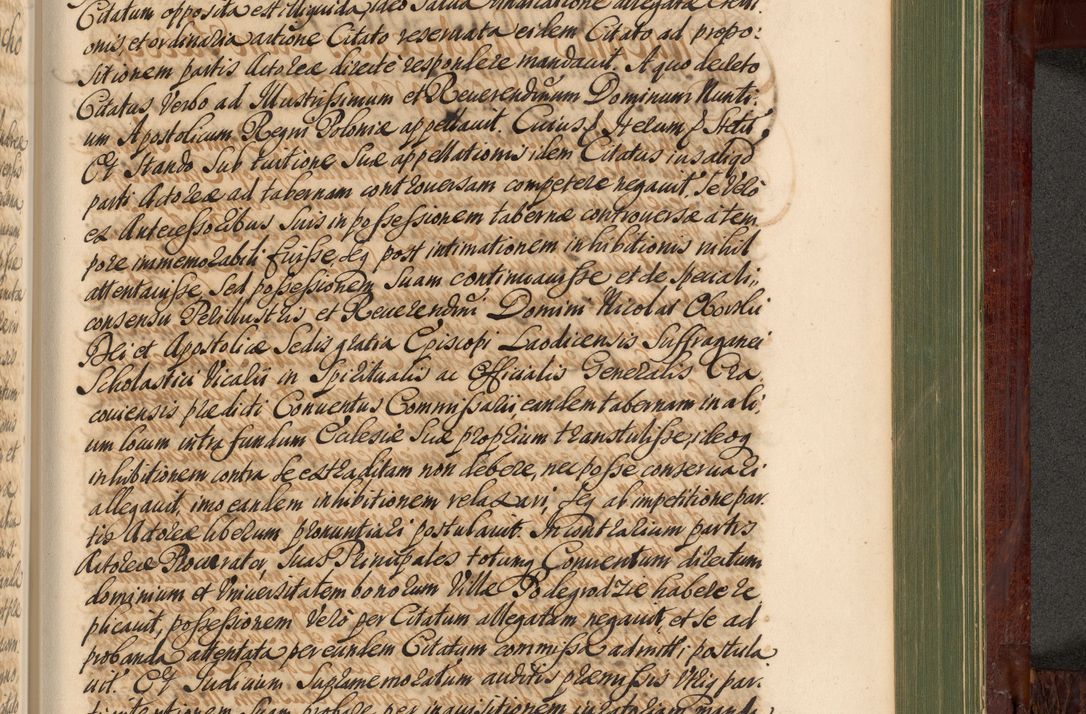 Citatum opposita est illiquida, ideo salva
onis, et ordinaria actione Citato reservata eidem Citato ad propo:
sitionem partis Actoreæ directè respondere mandavit. A quo decreto
Citatus Verbo ad Illustrissimum et Reverendissimum Dominum Nunti:
um Apostolicum Regni Poloniæ appellavit. Cuius
Et stando sub tuitione suæ appellationis idem Citatus ius aliqd
parti Actoreæ ad tabernam controversam competere negavit. Se verò
ex Antecessoribus suis in possessionem tabernæ controversæ à tem
pore immemorabili fuisse, seq post intimationem inhibitionis nihil
attentavisse, sed possessionem suam continuavisse et de speciali,
consensu Perillustris et Reverendissimi Domini Nicolai Oborski
Dei et Apostolicæ Sedis gratia Episcopi Laodicensis Suffraganei
Scholastici Vicarii in Spiritualis ac Officialis Generalis Cra,
coviensis prædicti Conventus Commissarii eandem tabernam in ali,
um locum intra fundum Ecclesiæ suæ proprium transtulisse, ideoq
inhibitionem contra se extraditam non debere, nec posse conservari
allegavit, imo eandem inhibitionem relaxari, seq ab impetitione par
tis Actoreæ liberum pronuntiari postulavit. In contrarium partis
Actoreæ Procurator, suas Principales totumq Conventum directum
dominium et Universitatem bonorum Villæ Podegrodzie habere re
plicavit, possessionem verò per Citatum allegatam negavit, et se ad
probanda attentata per eundem Citatum commissa admitti postula
vit. Et Iudicium Supramemoratum auditis præmissis utriq par,
ti intentionem suam probare per inquisitionem iuratoriam manda